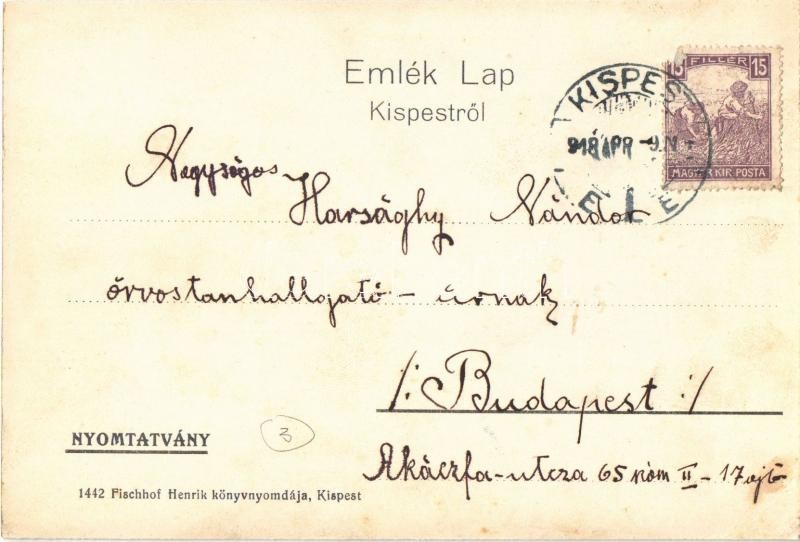 Emlék Lap
Kispestről
15 FILLÉR 15
MAGYAR KIR. POSTA
KISPEST
918 ÁPR
E L E
Nagyságos
Harsághy Nándor
órvostanhallgató - úrnak
/: Budapest :/
Akáczfa-utcza 65 szám II - 17 ajtó
NYOMTATVÁNY
3
1442 Fischhof Henrik könyvnyomdája, Kispest